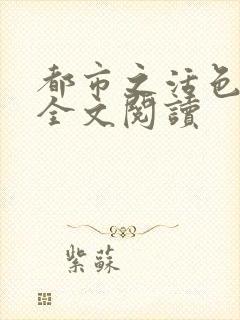 都市之活色
全文閱讀
紫蘇